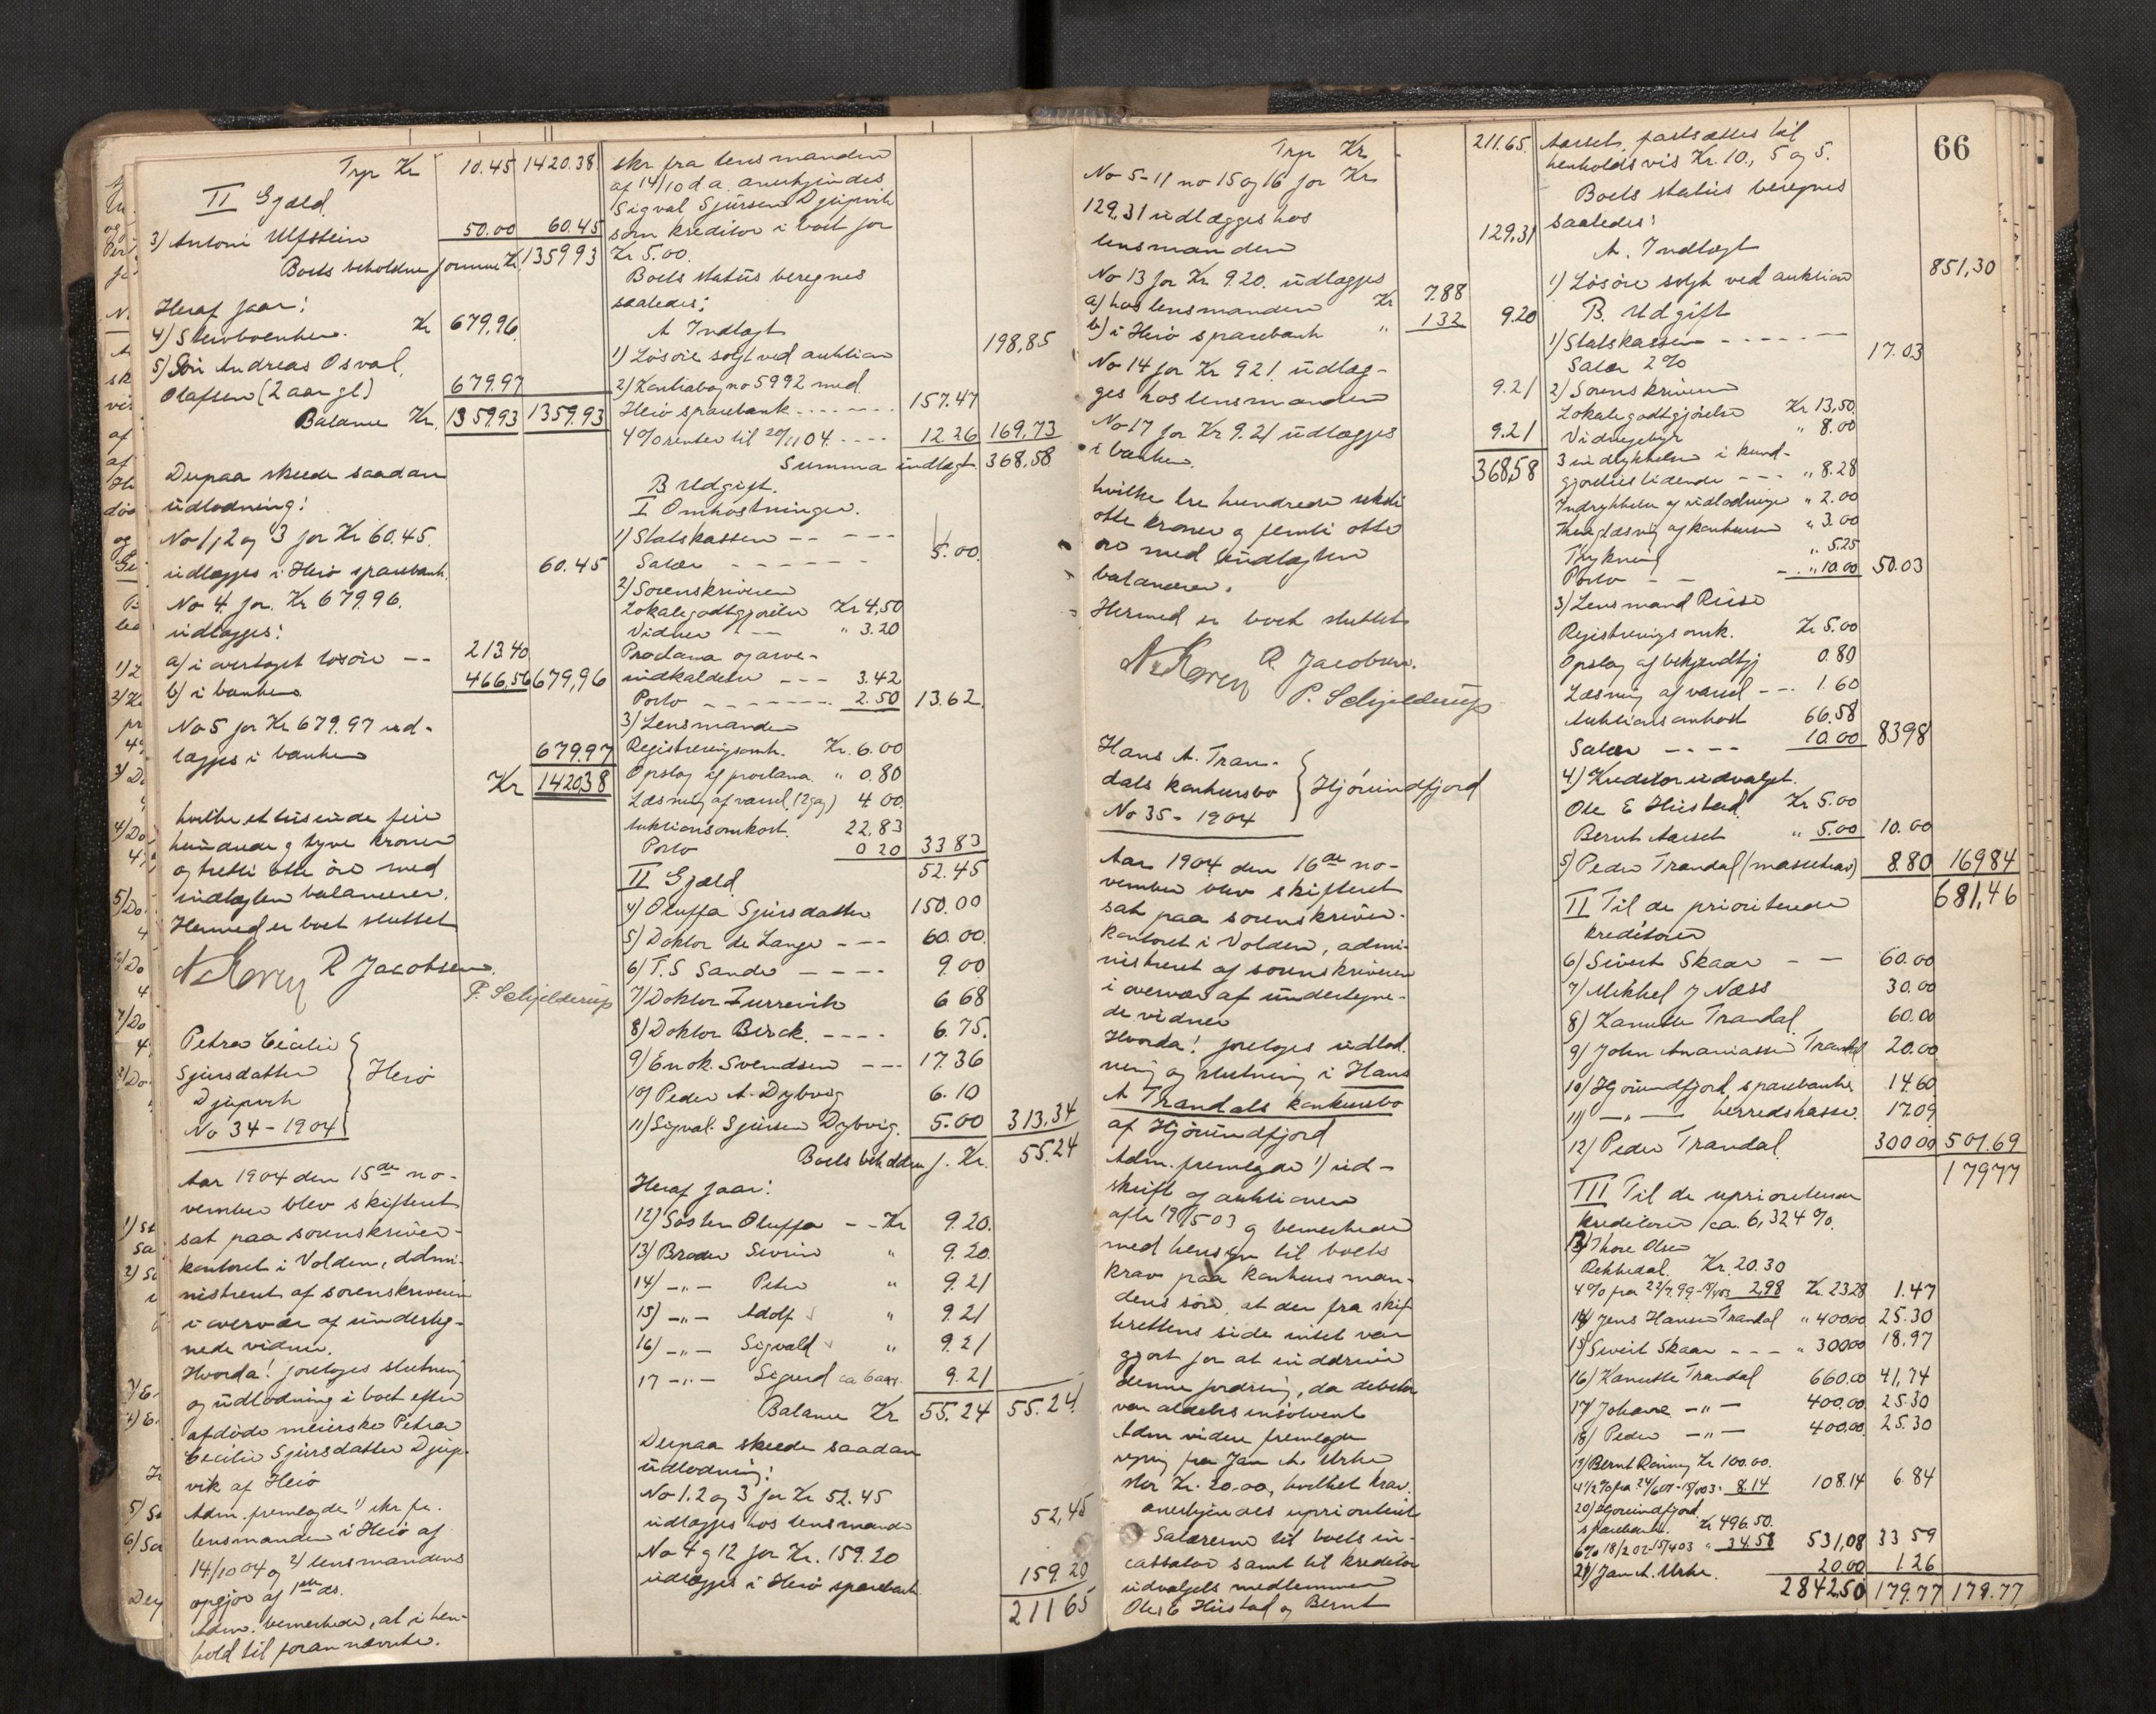 Trp Kr 10.45 1420.38
II Gjæld.
3) Antoni Ulfstein 50.00 60.45
Boets beholdne formue Kr. 1359.93
Heraf faar:
4) Stervboenken. Kr 679.96
5) Søn Andreas Osval,
Olafsen (2 aar gl) 679.97
Balance Kr. 1359.93 1359.93
Derpaa skeede saadan
udlodning:
No 1, 2 og 3 for Kr 60.45.
udlægges i Herø sparebank. 60.45
No 4. for. Kr 679.96.
udlægges:
a) i overtaget løsøre -- 213.40
b) i banken 466.56 679,96
No 5 for Kr 679.97 ud-
lægges i banken 679.97
Kr 1420.38
hvilke et tusinde fire
hundrede og tyve kroner
og tretti otte øre med
indtægten balancerer.
Hermed er boet sluttet
R Jacobsen.
P. Schjelderup
Petra Cecilie
Sjursdatter Herø
Djupvik
No 34 - 1904
Aar 1904 den 15de no-
vember blev skifteret
sat paa sorenskriver-
kontoret i Volden, admi-
nistreret af sorenskriveren
i overvær af underteg-
nede vidner.
Hvorda! foretoges slutning
og udlodning i boet efter
afdøde meierske Petra
Cecilie Sjursdatter Djup-
vik af Herø
Adm. fremlagde 1) skr. fra
lensmanden i Herø af
14/10 04 og 2) lensmandens
opgjør af 1ste ds.
Adm. bemerkede, at i hen-
hold til foran nævnte
skr. fra lensmanden
af 14/10 d.a. anerkjendes
Sigval Sjursen Djupvik
som kreditor i boet for
Kr 5.00.
Boets status beregnes
saaledes:
A Indtægt
1) Løsøre solgt ved auktion 198,85
2) Kontrabog no 5992 med
Herø sparebank ------ 157.47
4% renter til 20/11 04 ---- 12.26 169,73
Summa indtægt 368,58
B Udgift.
I Omkostninger.
1) Statskassen -- ---
Salær ------ 5.00
2) Sorenskriveren
Lokalegodtgjørelse Kr 4,50
Vidner - -- " 3.20
Proclama og arve-
indkaldelse --- 3.42
Porto ------- 2.50 13.62
3) Lensmanden
Registreringsomk. Kr. 6.00
Opslag af proclama " 0.80
Læsning af varsel (2 gg) 4.00
Auktionsomkost. 22.83
Porto 0 20 33 83
II Gjæld 52.45
4) Oluffa Sjursdatter 150.00
5) Doktor de Lange --- 60.00
6) T. S Sande ---- 9.00
7) Doktor Furrevik 6 68
8) Doktor Birck. ---- 6.75.
9) Enok. Svendsen --- 17.36
10) Peder A. Dybvig 6.10
11) Sigval. Sjursen Dybvig. 5.00 313,34
Boets beholdne f. Kr. 55.24
Heraf faar:
12) Søster Oluffa -- Kr 9.20.
13) Broder Severin " 9.20.
14) -"- Peter " 9.21
15) -"- Adolf " 9.21
16) -"- Sigvald " 9.21
17 -"- Sigurd ca 6 aar. 9.21
Balance Kr 55.24 55.24
Derpaa skeede saadan
udlodning:
No 1. 2 og 3 for Kr 52.45
udlægges hos lensmanden 52,45
No 4 og 12 for Kr. 159.20
udlægges i Herø sparebank 159.20
211 65
Trp Kr - 211.65.
No 5-11 no 15 og 16 for Kr
129.31 udlægges hos
lensmanden 129,31
No 13 for Kr 9.20. udlægges
a) hos lensmanden Kr 7.88
b) i Herø sparebank " 132 9.20
No 14 for Kr 9.21 udlæg-
ges hos lensmanden 9.21
No 17 for Kr 9.21 udlægges
i banken. 9.21
368,58
hvilke tre hundrede seksti
otte kroner og femti otte
øre med indtægten
balancerer.
Hermed er boet sluttet
R. Jacobsen.
P. Schjelderup
Hans A. Tran-
dals konkursbo Hjørundfjord
No 35 - 1904
Aar 1904 den 16de no-
vember blev skifteret
sat paa sorenskriver-
kontoret i Volden, admi-
nistreret af sorenskriveren
i overvær af undertegne-
de vidner
Hvorda! foretoges udlod-
ning og slutning i Hans
A Trandals konkursbo
af Hjørundfjord
Adm. fremlagde 1) ud-
skrift af auktionen
afh. 19/5 03 og bemerkede
med hensyn til boets
krav paa konkursman-
dens søn, at der fra skif-
terettens side intet var
gjort for at inddrive
denne fordring, da debitor
var aldeles insolvent
Adm videre fremlagde
regning fra Jan A. Urke
stor Kr. 20.00, hvilket krav
anerkjendes uprioriteret
Salærerne til boets in-
cassator samt til kreditor
udvalgets medlemmer
Ole E Hustad og Bernt
66
Aarset, fastsættes til
henholdsvis Kr. 10., 5 og 5.
Boets status beregnes
saaledes:
A. Indtægt
1) Løsøre solgt ved auktion 851,30
B. Udgift
1) Statskassen ------
Salær 2% 17.03
2) Sorenskriveren
Lokalegodtgjørelse Kr 13,50
Vidnegebyr " 8.00
3 indrykkelser i kund-
gjørelsestidende --- " 8.28
Indrykkelse af udlodninge " 2.00
Thinglæsning af konkursen " 3.00
Trykning " 5.25
Porto - - - " 10.00 50.03
3) Lensmand Riise
Registreringsomk. Kr 5.00
Opslag af bekjendtgj 0.80
Læsning af varsel --- 1.60
Auktionsomkost 66.58
Salær ---- 10.00 83 98
4) Kreditorudvalget.
Ole E Hustad Kr 5.00
Bernt Aarset " 5.00 10.00
5) Peder Trandal (massekrav) 8.80 169 84
II Til de prioriterede 681,46
kreditorer
6) Sivert Skaar - - 60.00
7) Mikkel J Næss 30.00
8) Kanutte Trandal 60.00
9) John Ananiassen Trandal 20.00
10) Hjørundfjord sparebank 14.60
11) -"- herredskasse. 17.09
12) Peder Trandal 300 00 501.69
179 77
III Til de uprioriterede
kreditorer /ca. 6,324%.
13) Thore Olsen
Rekkedal Kr. 20.30
2.98 Kr. 23 28 1.47
14) Jens Hansen Trandal " 400 00 25.30
15) Sivert Skaar --- " 300 00 18.97
16) Kanutte Trandal 660.00 41,74
17) Johanne -"- 400.00 25.30
18) Peder -"- 400.00 25.30
19) Bernt Rønning Kr 100.00.
8.14 108.14 6.84
20) Hjørundfjord
sparebank. Kr 496.50.
6% 18/2 02 - 15/4 03 " 34.58 531,08 33 59
21) Jan A. Urke. 20.00 1.26
2842,50 179.77 179.77